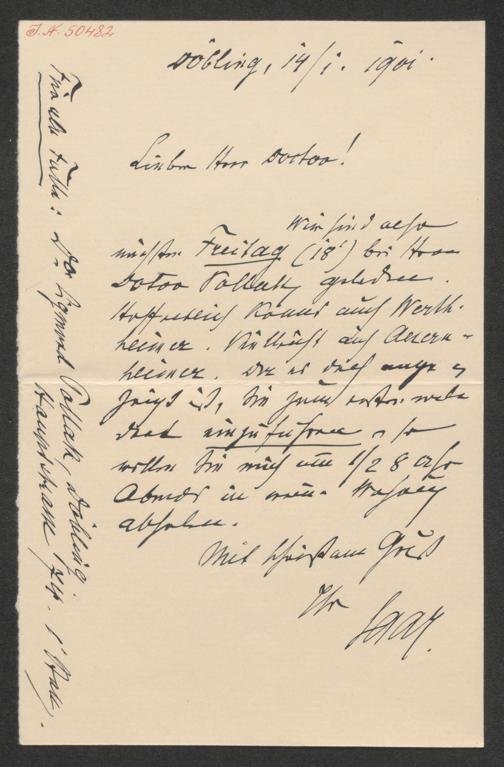 J.N. 50482
Döbling, 14/1. 1901.
Lieber Herr Doctor!
Wir sind also
nächsten Freitag (18t) bei Herrn
Doctor Pollak geladen.
Hoffentlich kommt auch Werth-
heimer. Vielleicht auch Auern-
heimer. Da es doch ange-
zeigt ist, Sie zum ersten male
dort einzuführen, so
wollen Sie mich um 1/2 8 Uhr
Abends in meiner Wohnung
abholen.
Mit Gruß
Ihr
Saar.
Für alle Fälle: Dr. Sigmund Pollak, Döbling.
Hauptstrasse 74. 1 Stock.